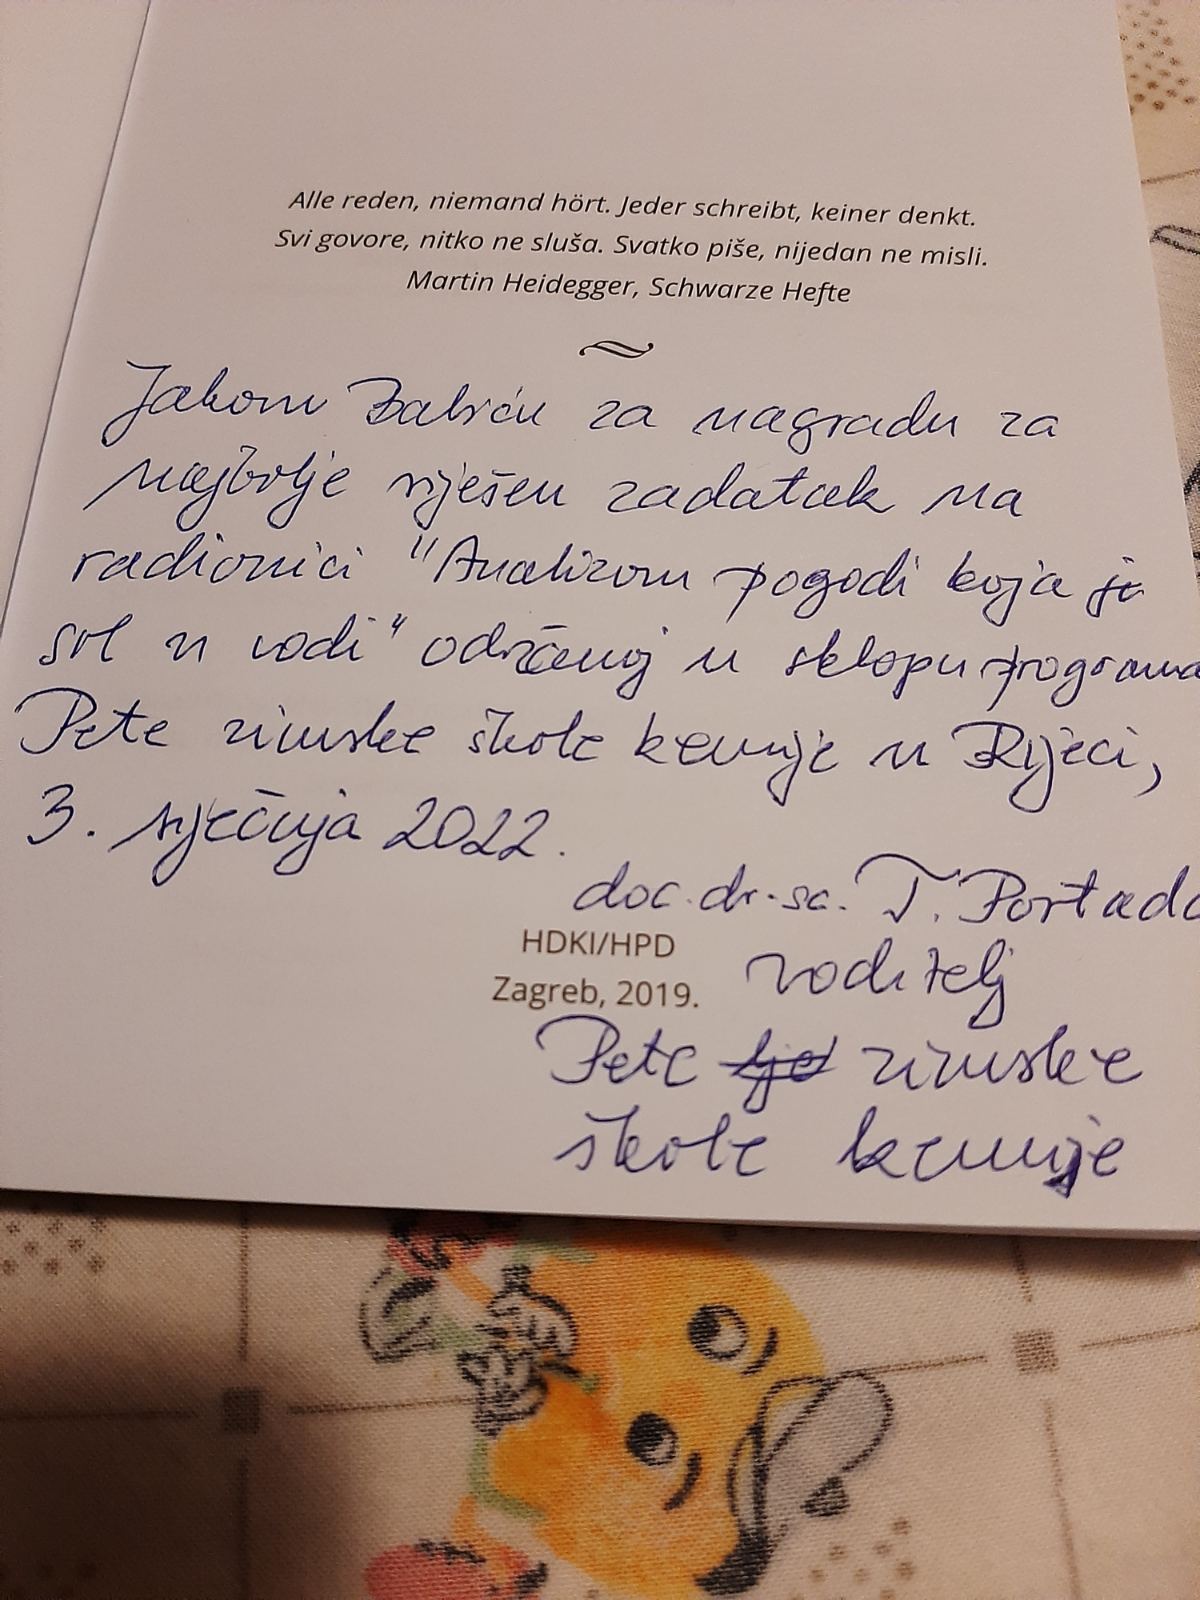 Alle reden, niemand hört. Jeder schreibt, keiner denkt.
Svi govore, nitko ne sluša. Svatko piše, nijedan ne misli.
Martin Heidegger, Schwarze Hefte
Jakovu Babiću za nagradu za
najbolje riješen zadatak na
radionici "Analizom pogodi koja je
sol u vodi" održanoj u sklopu programa
Pete zimske škole kemije u Rijeci,
3. siječnja 2022.
doc. dr. sc. T. Portada
HDKI/HPD
voditelj
Zagreb, 2019.
Pete zimske
škole kemije